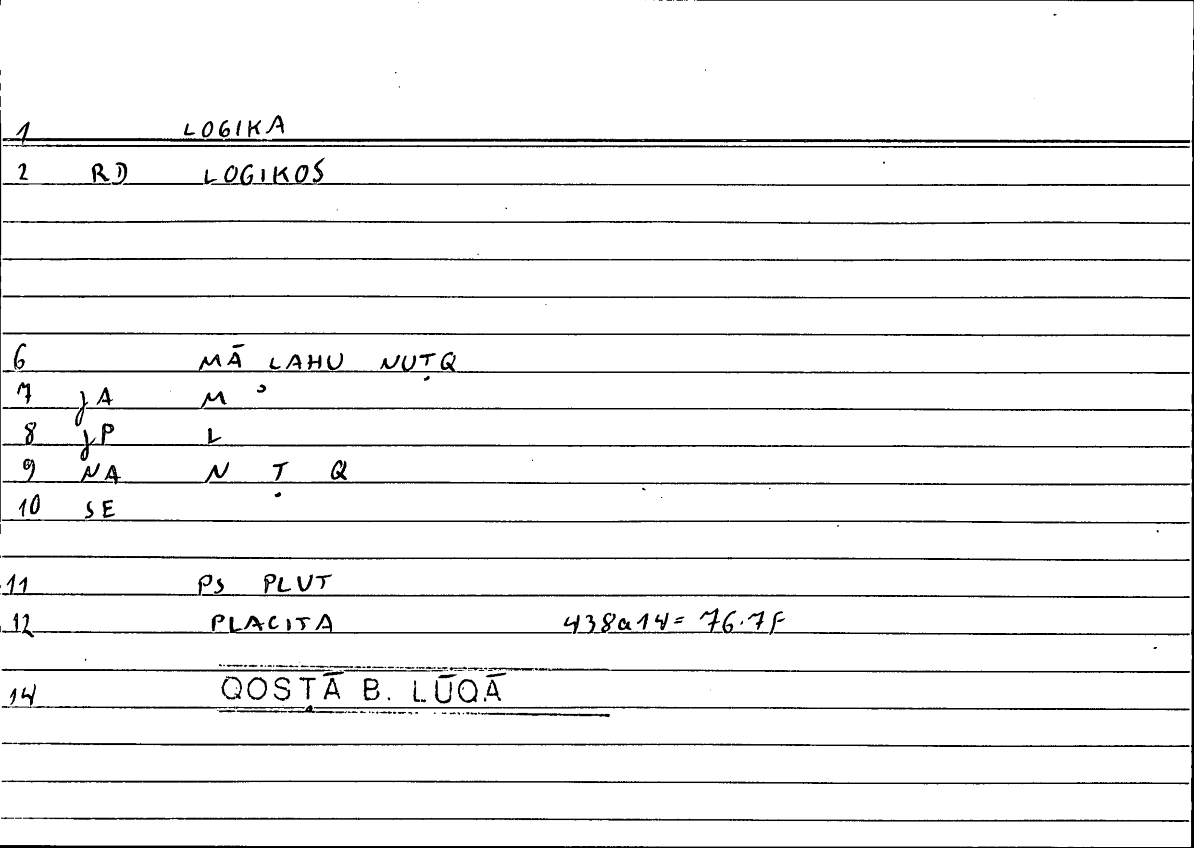 1 LOGIKA
2 RD LOGIKOS
6 MĀ LAHU NUṬQ
7 JA M ʾ
8 JP L
9 NA N Ṭ Q
10 SE
11 PS PLUT
12 PLACITA 438a14= 76.7F
14 QOSṬĀ B. LŪQĀ